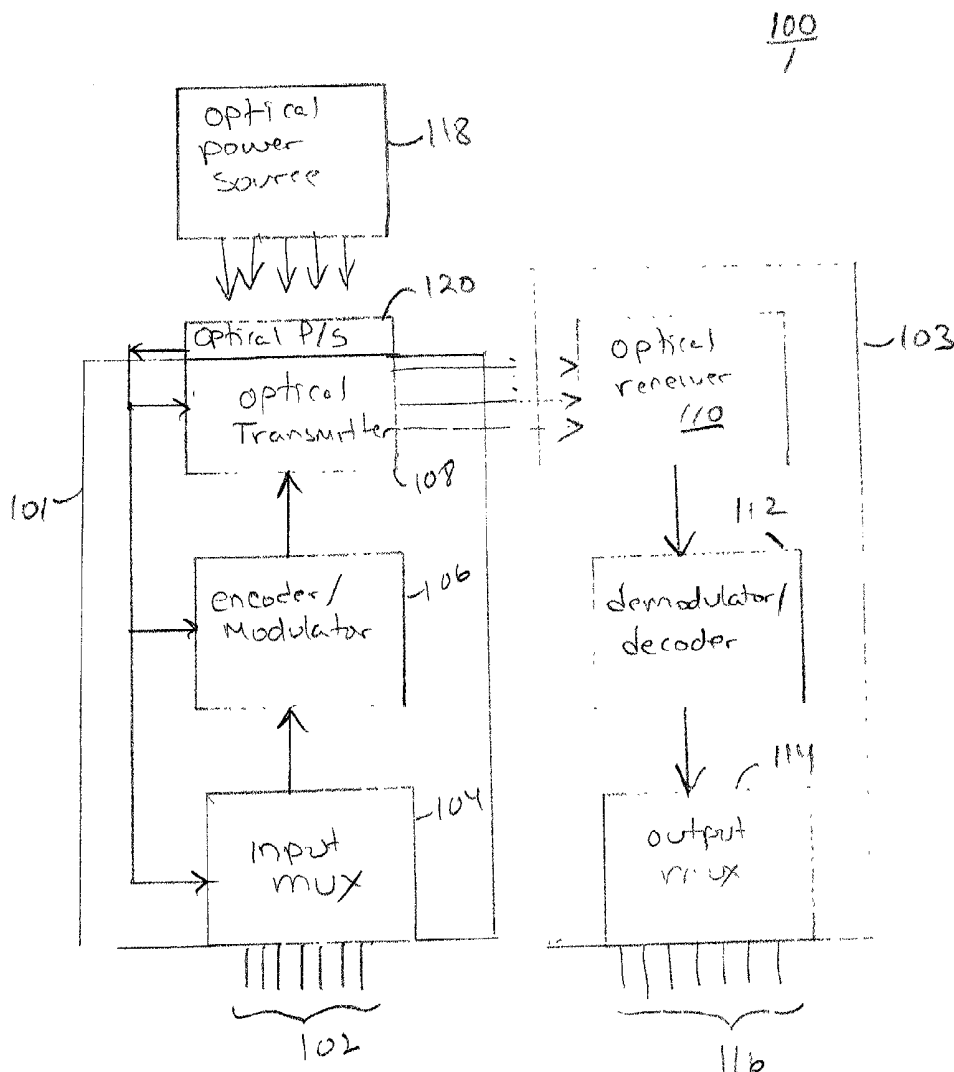 100
optical
power
source
118
120
optical P/S
optical
Transmitter
108
101
optical
receiver
110
103
encoder/
Modulator
106
112
demodulator/
decoder
input
mux
104
114
output
mux
102
116